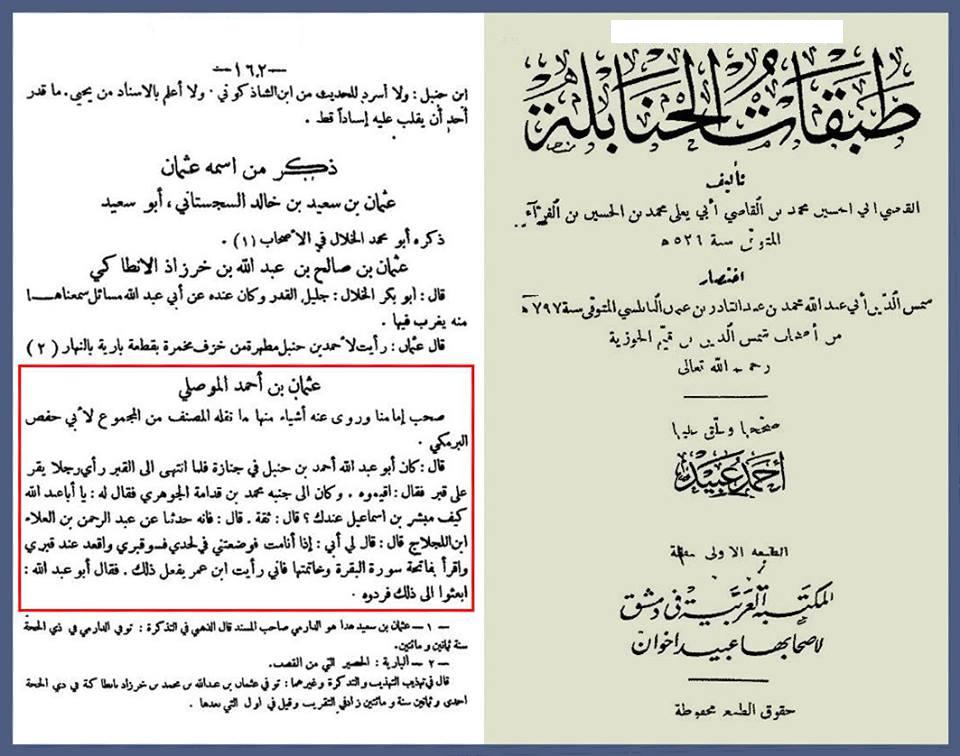 طبقات الحنابلة
تأليف
القاضي أبي الحسين محمد بن القاضي أبي يعلى محمد بن الحسين بن الفراء
المتوفى سنة ٥٢٦ هـ
اختصار
شمس الدين أبي عبد الله محمد بن عبد القادر بن عثمان النابلسي المتوفى سنة ٧٩٧ هـ
من أصحاب شمس الدين بن قيم الجوزية
رحمه الله تعالى
صححها وعلق عليها
أحمد عبيد
الطبعة الاولى
المكتبة العربية في دمشق
لأصحابها عبيد اخوان
حقوق الطبع محفوظة
—١٦٢—
ابن حنبل : ولا أسرد للحديث من ابن الشاذكوني . ولا أعلم بالاسناد من يحيى . ما قدر
أحد أن يقلب عليه إسناداً قط .
ذكر من اسمه عثمان
عثمان بن سعيد بن خالد السجستاني ، أبو سعيد
ذكره أبو محمد الخلال في الأصحاب (١) .
عثمان بن صالح بن عبد الله بن خرزاذ الانطاكي
قال : أبو بكر الخلال : جليل القدر وكان عنده عن أبي عبد الله مسائل سمعناهـا
منه يغرب فيها .
قال عثمان : رأيت لأحمد بن حنبل مطهرة من خزف مخمرة بقطعة بارية بالنهار (٢)
عثمان بن أحمد الموصلي
صحب إمامنا وروى عنه أشياء منها ما نقله المصنف من المجموع لأبي حفص
البرمكي .
قال : كان أبو عبد الله أحمد بن حنبل في جنازة فلما انتهى الى القبر رأى رجلا يقر
على قبر فقال : اقيموه . وكان الى جنبه محمد بن قدامة الجوهري فقال له : يا أبا عبد الله
كيف مبشر بن اسماعيل عندك ؟ قال : ثقة . قال : فانه حدثنا عن عبد الرحمن بن العلاء
ابن اللجلاج قال : قال لي أبي : إذا أنا مت فوضعتني في لحدي فسو قبري واقعد عند قبري
واقرأ بفاتحة سورة البقرة وخاتمتها فاني رأيت ابن عمر يفعل ذلك . فقال أبو عبد الله :
ابعثوا الى ذلك فردوه .
— ١ — عثمان بن سعيد هذا هو الدارمي صاحب المسند قال الذهبي في التذكرة : توفي الدارمي في ذي الحجة
سنة ثمانين و مائتين .
— ٢ — البارية : الحصير التي من القصب .
قال في تهذيب التهذيب والتذكرة وغيرهما : توفي عثمان بن عبد الله بن محمد بن خرزاذ بانطاكة في ذي الحجة
احدى وثمانين سنة و مائتين زاد في التقريب وقيل في اول التي بعدها .